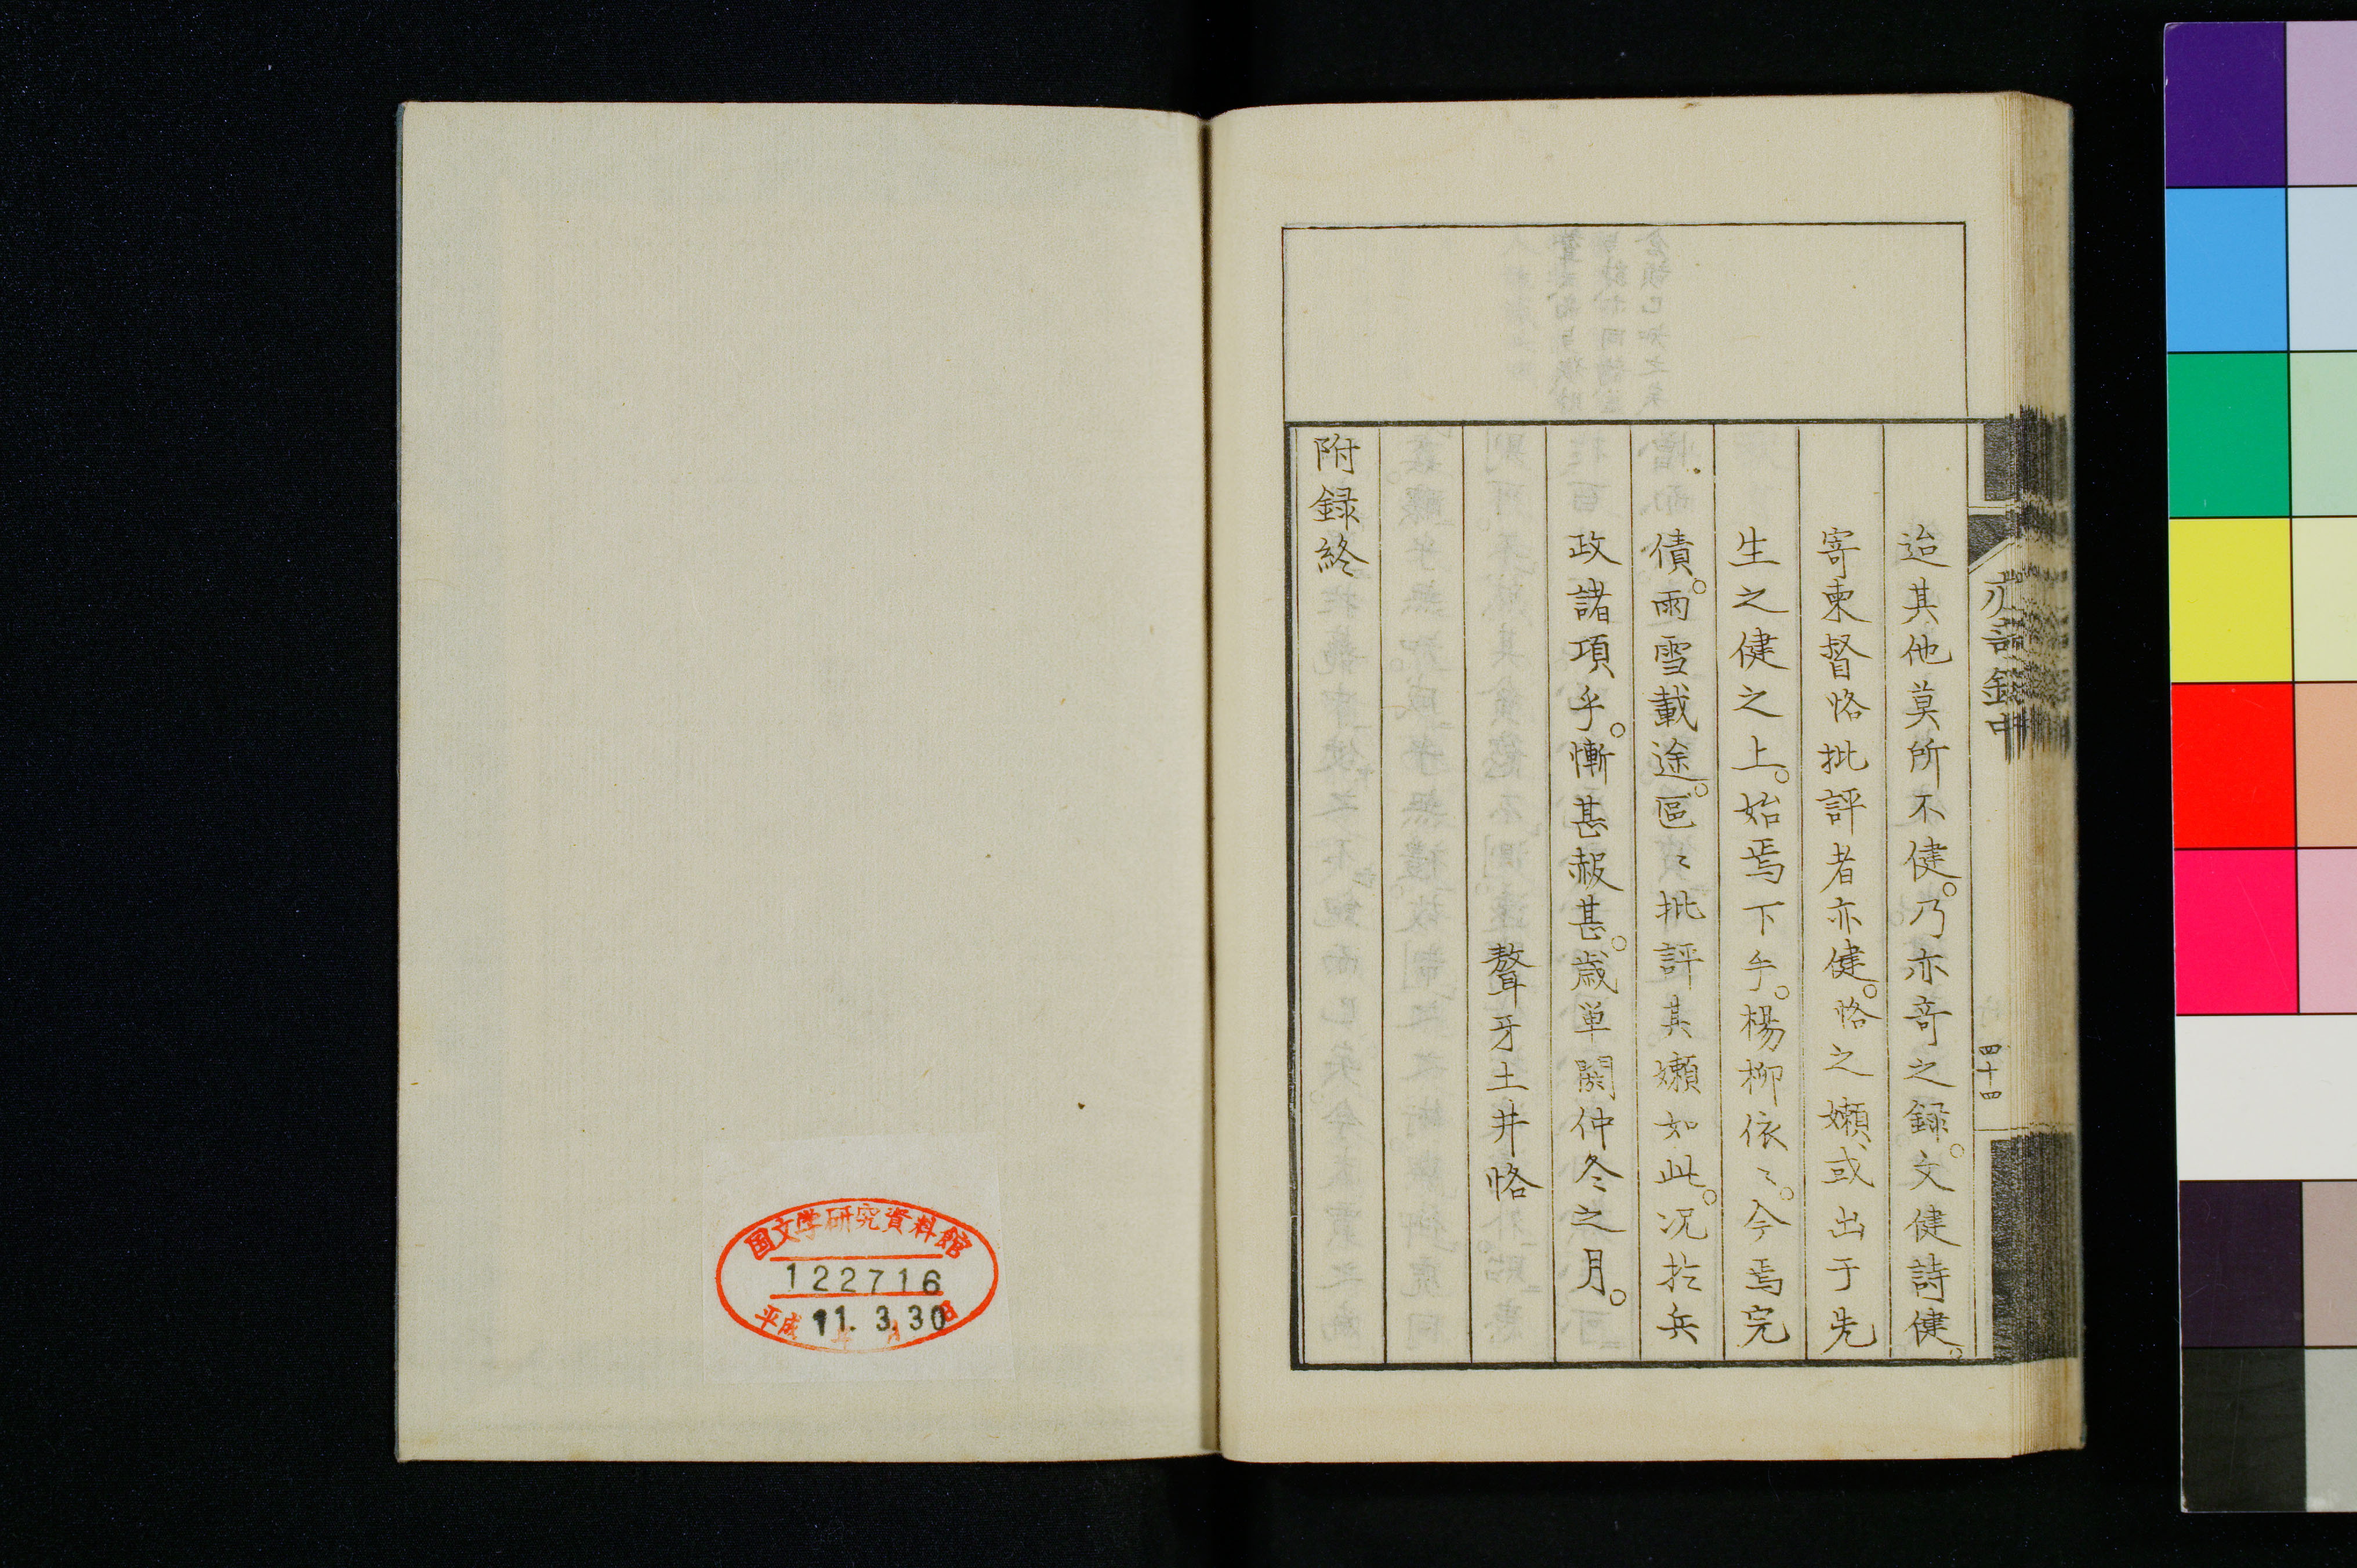 迨其他莫所不健。乃亦奇之録。文健詩健。
寄柬督恪批評者亦健。恪之嬾或出于先
生之健之上。始焉下乎。楊柳依〻。今焉完
債。雨雪載途。區〻批評其嬾如此。况於兵
政諸項乎。慚甚赧甚。歳単閼仲冬之月。
聱牙土井恪
附録終
録中
四十四
国文学研究資料館
122716
平成 11. 3. 30